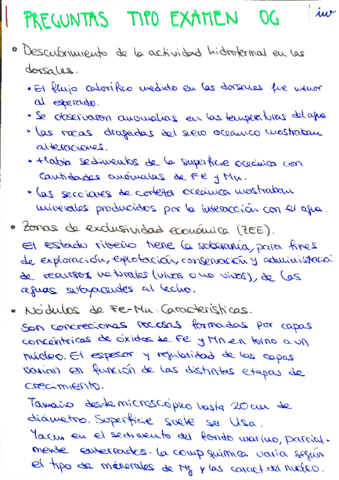 PREGUNTAS TIPO EXAMEN OG
• Descubrimiento de la actividad hidrotermal en las
dorsales.
• El flujo calorífico medido en las dorsales fue menor
al esperado.
• Se observaron anomalías en las temperaturas del agua
• Las rocas dragadas del suelo oceánico mostraban
alteraciones.
• Había sedimentos de la superficie oceánica con
cantidades anómalas de Fe y Mn.
• Las secciones de corteza oceánica mostraban
minerales producidos por la interacción con el agua.
• Zonas de exclusividad económica (ZEE).
El estado ribereño tiene la soberanía, para fines
de exploración, explotación, conservación y administració.
de recursos naturales (vivos o no vivos), de las
aguas subyacentes al lecho.
• Nódulos de Fe-Mn. Características.
Son concreciones rocosas formadas por capas
concéntricas de óxidos de Fe y Mn en torno a un
núcleo. El espesor y regularidad de las capas
varían en función de las distintas etapas de
crecimiento.
Tamaño desde microscópico hasta 20 cm de
diámetro. Superficie suele ser lisa.
Yacen en el sedimento del fondo marino, parcial-
mente enterrados. La comp química varía según
el tipo de minerales de Mg y las caract del núcleo.